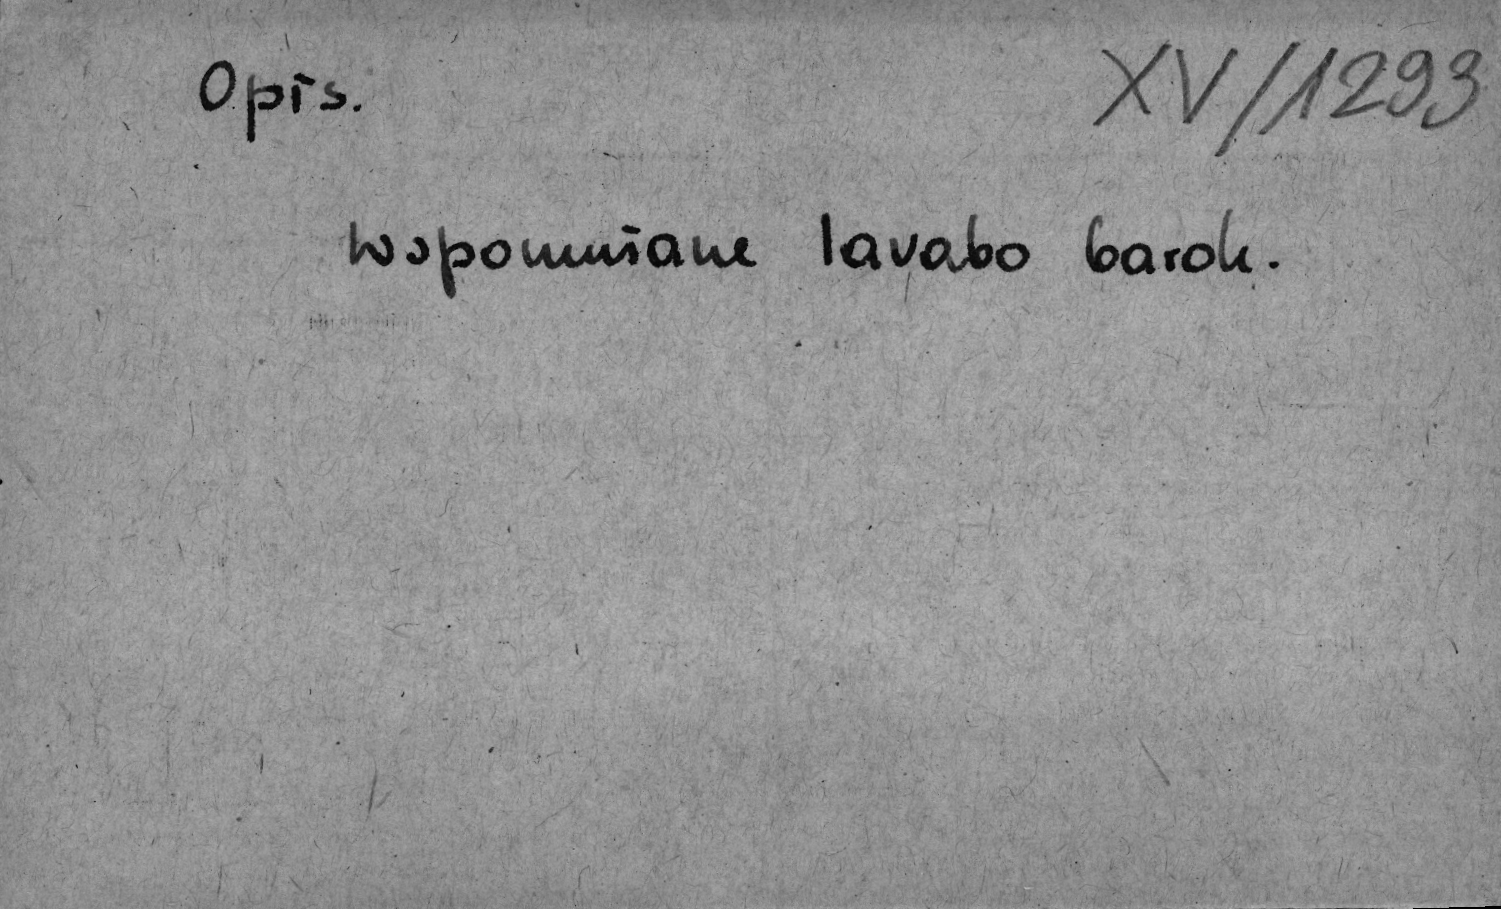 Opis. XV/1293
wspomniane lavabo barok.